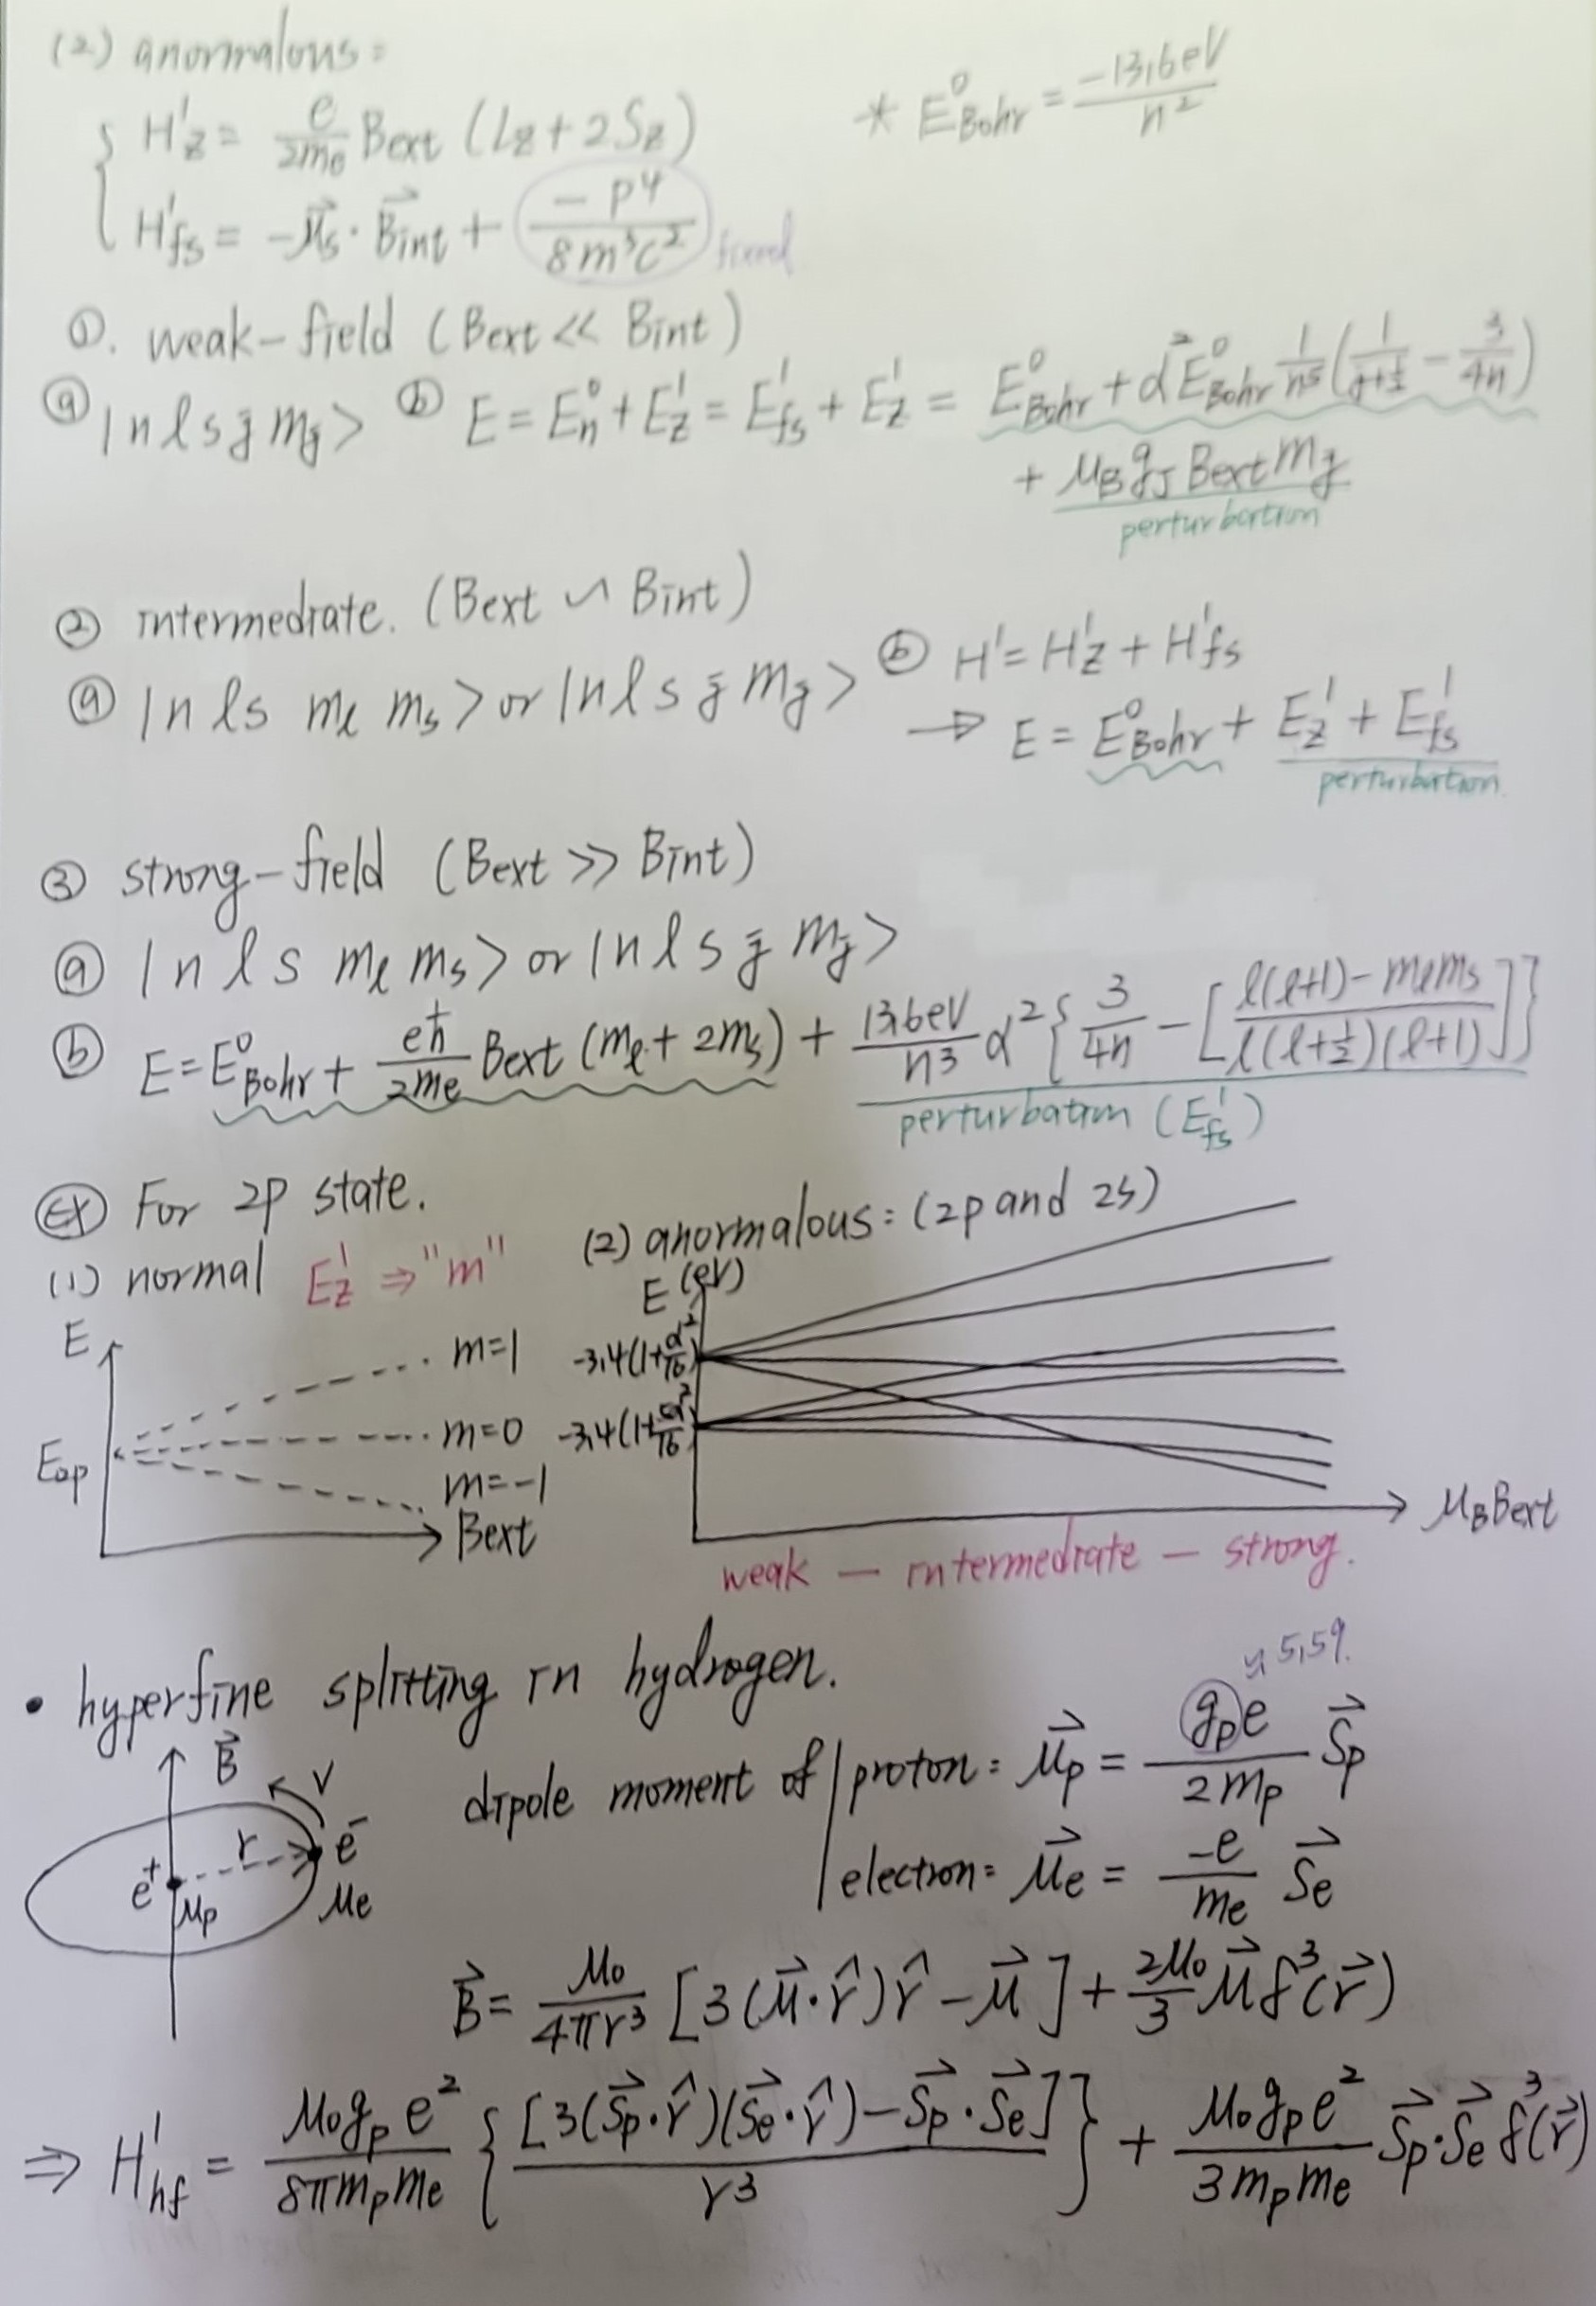 (2) anormalous =
H'z = e/2me Bext (Lz + 2Sz)
* E⁰Bohr = -13,6eV/n²
H'fs = -μ⃗s · B⃗int + -p⁴/8m³c² fixed
①. weak-field (Bext << Bint)
ⓐ |n l s j mj> ⓑ E = E⁰n + E¹z = E¹fs + E¹z = E⁰Bohr + α² E⁰Bohr 1/n⁵ (1/j+½ - 3/4n)
+ μB gJ Bext mj
perturbation
② intermediate. (Bext ∽ Bint)
ⓐ |n l s ml ms> or |n l s j mj> ⓑ H' = H'z + H'fs
⇒ E = E⁰Bohr + E¹z + E¹fs
perturbation
③ strong-field (Bext >> Bint)
ⓐ |n l s ml ms> or |n l s j mj>
ⓑ E = E⁰Bohr + eħ/2me Bext (ml + 2ms) + 13,6eV/n³ α² { 3/4n - [ l(l+1) - mlms / l(l+½)(l+1) ] }
perturbation (E¹fs)
EX For 2p state.
(1) normal E¹z ⇒ "m"
(2) anormalous = (2p and 2s)
E
m=1
m=0
E2p
m=-1
Bext
E (eV)
-3,4(1+α²/16)
-3,4(1+5α²/16)
μB Bext
weak - intermediate - strong.
• hyperfine splitting in hydrogen.
B⃗
v
r
e⁻
e⁺
μp
μe
≈ 5,59.
dipole moment of / proton = μ⃗p = gp e/2mp S⃗p
election = μ⃗e = -e/me S⃗e
B⃗ = μ0/4πr³ [3(μ⃗·r̂)r̂ - μ⃗] + 2μ0/3 μ⃗ δ³(r⃗)
⇒ H'hf = μ0 gp e²/8π mp me { [3(S⃗p·r̂)(S⃗e·r̂) - S⃗p·S⃗e] / r³ } + μ0 gp e²/3 mp me S⃗p·S⃗e δ³(r⃗)